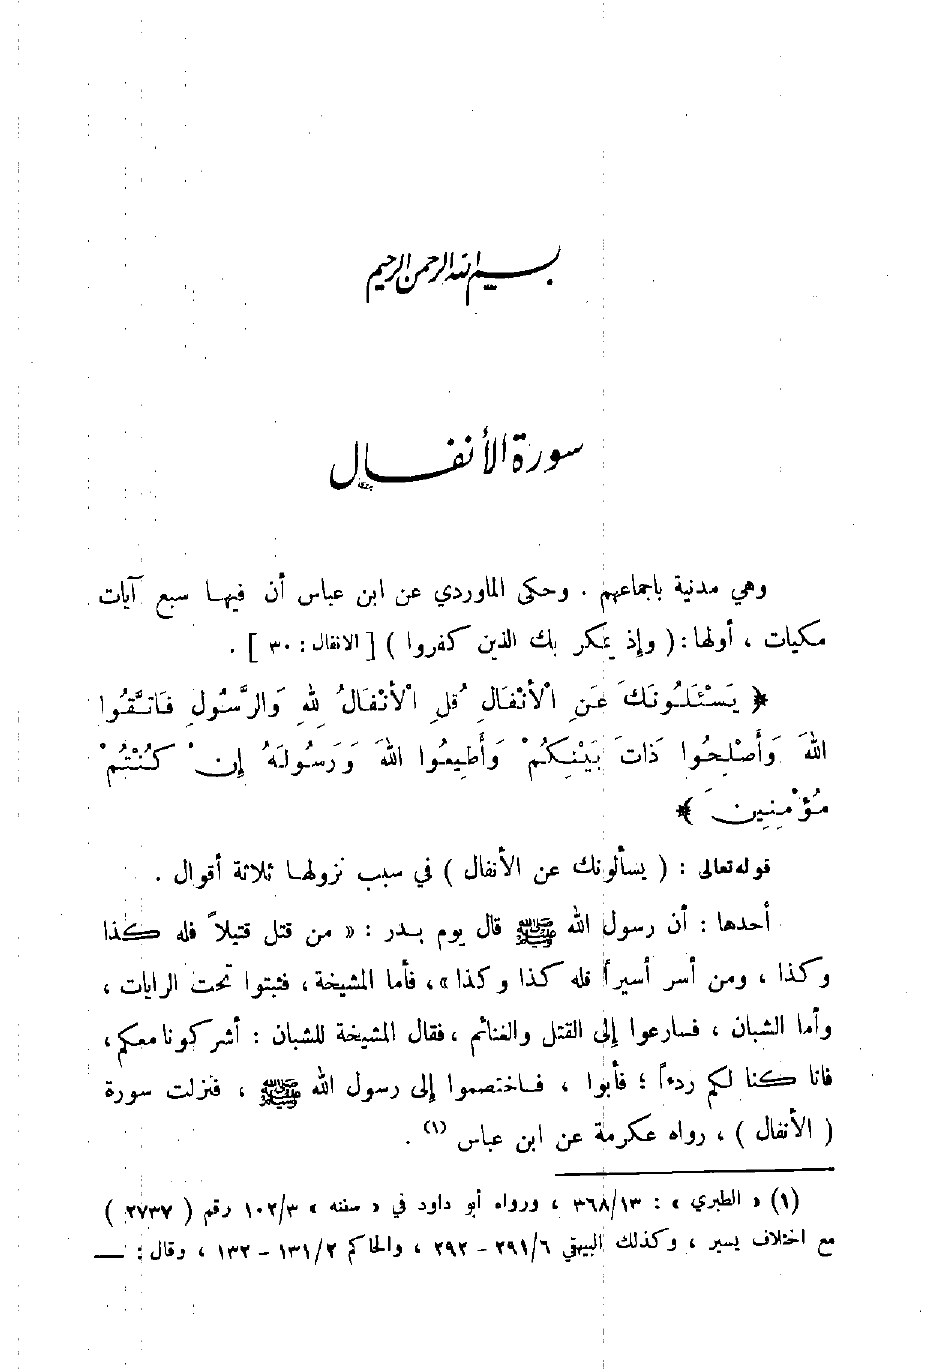 بسم الله الرحمن الرحيم
سورة الأنفال
وهي مدنية باجماعهم . وحكى الماوردي عن ابن عباس أن فيها سبع آيات
مكيات ، أولها : ( وإذ يمكر بك الذين كفروا ) [ الانفال : ٣٠ ] .
﴿ يَسْئَلُونَكَ عَنِ الْأَنْفَالِ قُلِ الْأَنْفَالُ لِلهِ وَالرَّسُولِ فَاتَّقُوا
اللهَ وَأَصْلِحُوا ذَاتَ بَيْنِكُمْ وَأَطِيعُوا اللهَ وَرَسُولَهُ إِنْ كُنْتُمْ
مُؤْمِنِينَ ﴾
قوله تعالى : ( يسألونك عن الأنفال ) في سبب نزولها ثلاثة أقوال .
أحدها : أن رسول الله ﷺ قال يوم بدر : « من قتل قتيلاً فله كذا
وكذا ، ومن أسر أسيراً فله كذا وكذا » ، فأما المشيخة ، فثبتوا تحت الرايات ،
وأما الشبان ، فسارعوا إلى القتل والغنائم ، فقال المشيخة للشبان : أشركونا معكم ،
فانا كنا لكم ردءاً ؛ فأبوا ، فاختصموا إلى رسول الله ﷺ ، فنزلت سورة
( الأنفال ) ، رواه عكرمة عن ابن عباس (١) .
(١) « الطبري » : ٣٦٨/١٣ ، ورواه أبو داود في « سننه » ١٠٢/٣ رقم ( ٢٧٣٧ )
مع اختلاف يسير ، وكذلك البيهقي ٢٩١/٦ - ٢٩٢ ، والحاكم ١٣١/٢ - ١٣٢ ، وقال : —